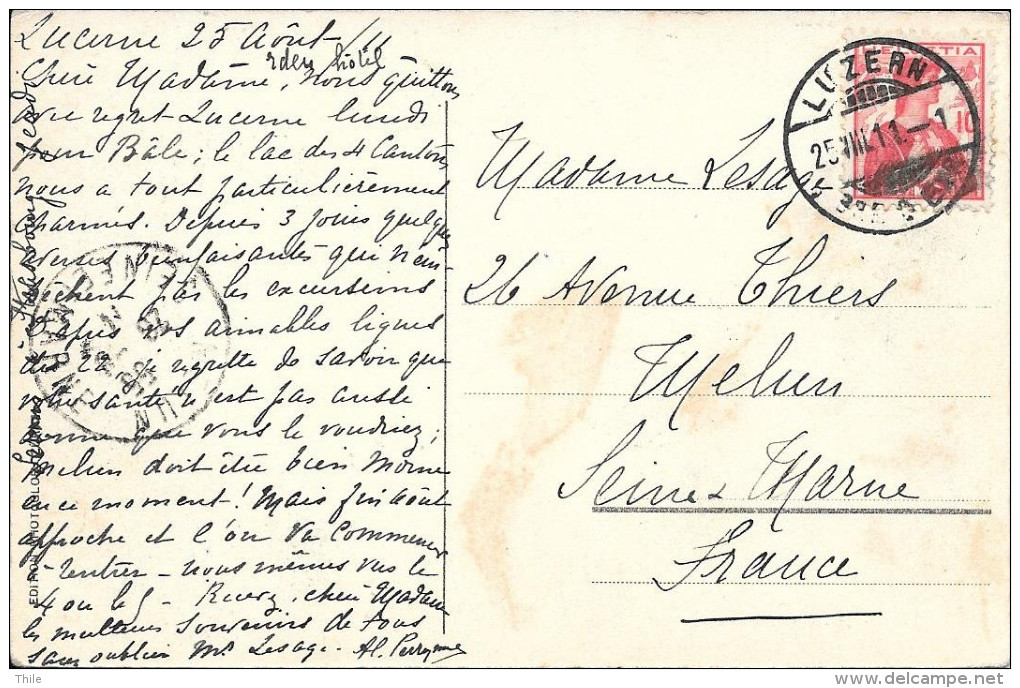 Lucerne 25 Août 11
Eden hôtel
Chère Madame, nous quittons
avec regret Lucerne lundi
pour Bâle; le lac des 4 Cantons
nous a tout particulièrement
charmés. Depuis 3 jours quelques
averses bienfaisantes qui n'em-
pêchent pas les excursions
D'après vos aimables lignes
du 22 je regrette de savoir que
votre santé n'est pas aussi
bonne que vous le voudriez;
Melun doit être bien morne
en ce moment! Mais fin août
approche et l'on va commencer
à rentrer - nous mêmes vers le
4 ou le 5 - Recevez, chère Madame
les meilleurs souvenirs de tous
sans oublier Mr Lesage.
Madame Lesage
26 Avenue Thiers
Melun
Seine & Marne
France
HELVETIA
10
LUZERN
25.VIII.11.—1
EDITION PHOTOGLOB
Thile
delcampe.net